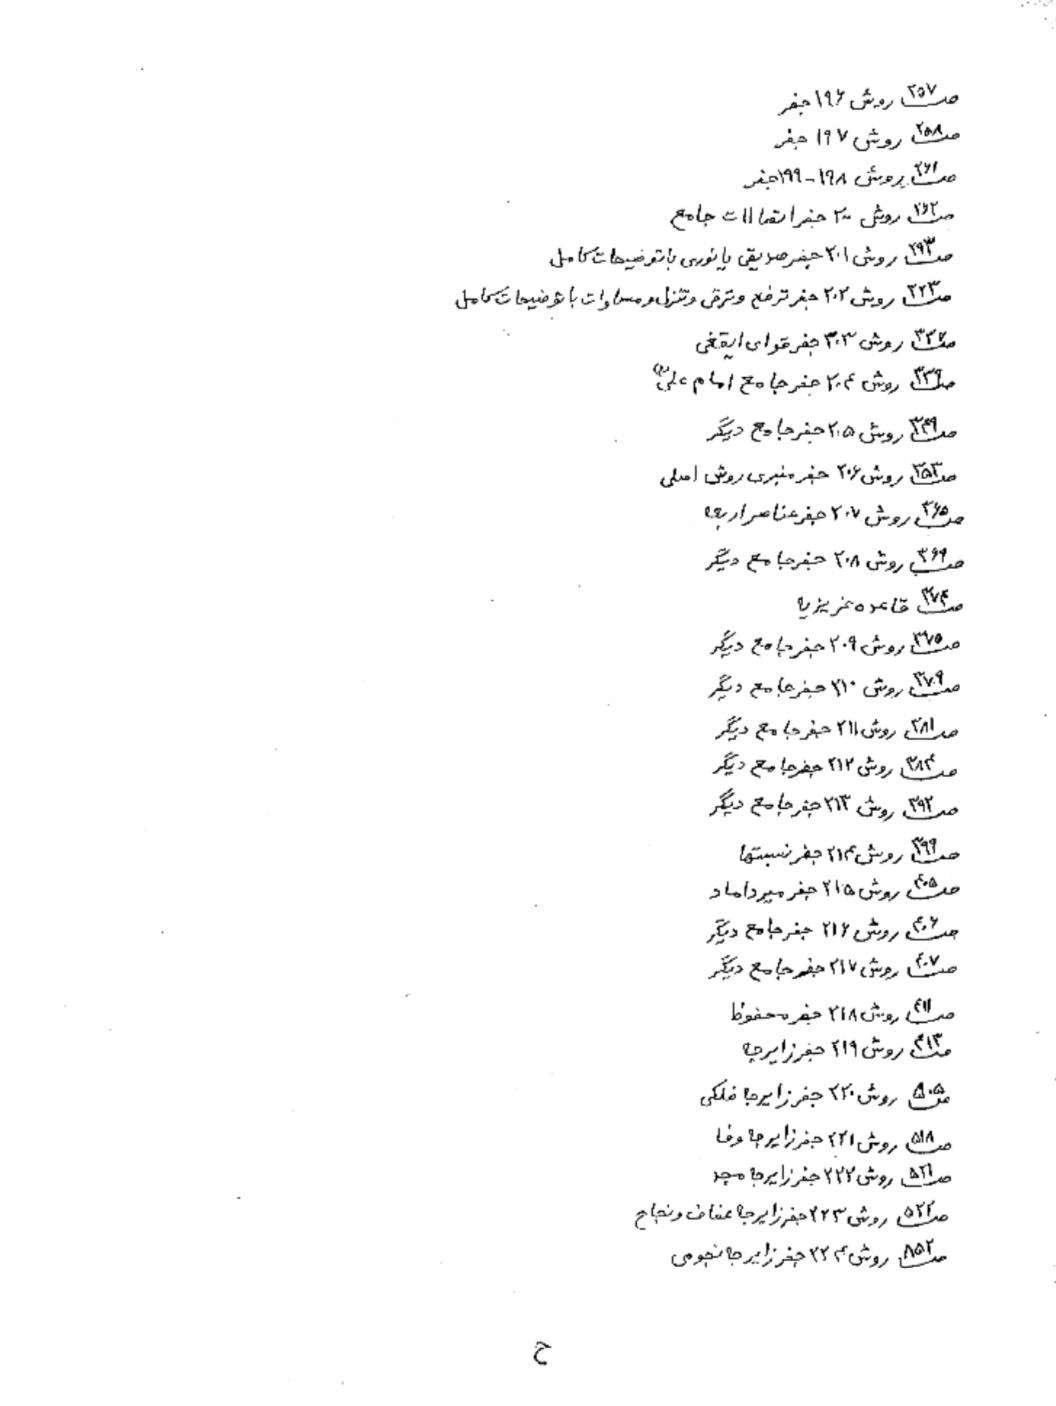 ص ۲۵۷ روش ۱۹۶ جفر
ص ۲۵۸ روش ۱۹۷ جفر
ص ۲۶۱ روش ۱۹۸-۱۹۹ جفر
ص ۲۶۲ روش ۲۰۰ جفر اتصالات جامع
ص ۲۹۳ روش ۲۰۱ جفر صدیقی یا نوری با توضیحات کامل
ص ۳۲۳ روش ۲۰۲ جفر ترفع و ترقی و تنزل و مساوات با توضیحات کامل
ص روش ۲۰۳ جفر قوای ایقغی
ص ۳۳۹ روش ۲۰۴ جفر جامع امام علی (ع)
ص ۳۴۹ روش ۲۰۵ جفر جامع دیگر
ص ۳۵۳ روش ۲۰۶ جفر منبری روش اصلی
ص ۳۶۵ روش ۲۰۷ جفر عناصر اربعه
ص ۳۶۹ روش ۲۰۸ جفر جامع دیگر
ص ۳۷۴ قاعده غریزیه
ص ۳۷۵ روش ۲۰۹ جفر جامع دیگر
ص ۳۷۹ روش ۲۱۰ جفر جامع دیگر
ص ۳۸۱ روش ۲۱۱ جفر جامع دیگر
ص ۳۸۴ روش ۲۱۲ جفر جامع دیگر
ص ۳۹۲ روش ۲۱۳ جفر جامع دیگر
ص ۳۹۹ روش ۲۱۴ جفر نسبتها
ص ۴۰۵ روش ۲۱۵ جفر میرداماد
ص ۴۰۶ روش ۲۱۶ جفر جامع دیگر
ص ۴۰۷ روش ۲۱۷ جفر جامع دیگر
ص ۴۱۱ روش ۲۱۸ جفر محفوظ
ص ۴۱۳ روش ۲۱۹ جفر زایرجه
ص ۵۰۵ روش ۲۲۰ جفر زایرجا فلکی
ص ۵۱۸ روش ۲۲۱ جفر زایرجه وفا
ص ۵۲۱ روش ۲۲۲ جفر زایرجا مجد
ص ۵۲۲ روش ۲۲۳ جفر زایرجا عفاف و نجاح
ص ۸۵۲ روش ۲۲۴ جفر زایرجا نجومی
ح